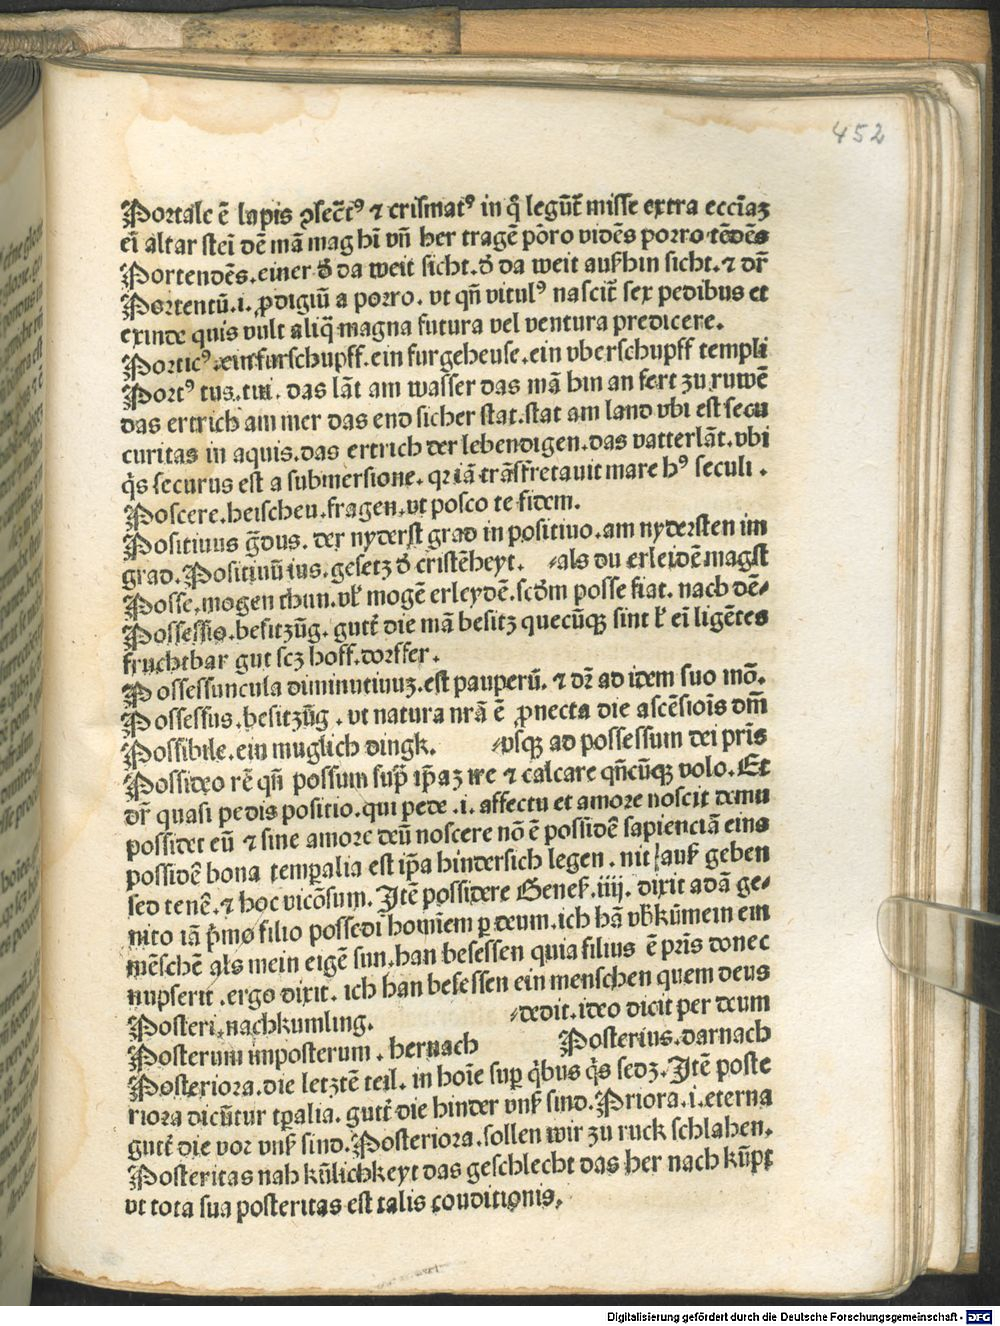 452
Portale ē lapis ꝯsec̄tꝰ ⁊ crismatꝰ in q̄ legūt̄ misse extra eccīaꝫ
eī altar stei dē mā mag hī vn̄ her tragē pòro vidēs porro tēdēs
Portendēs. einer d̄ da weit sicht. d̄ da weit aufhin sicht. ⁊ dr̄
Portentū. i. ꝓdigiū a porro. vt qn̄ vitulꝰ nascit̄ sex pedibus et
exinde quis vult aliq̄ magna futura vel ventura predicere.
Porticꝰ. ein furschupff. ein furgeheuse. ein vberschupff templi
Portꝰ tus. tui. das lāt am wasser das mā hin an fert zu ruwē
das ertrich am mer das end sicher stat. stat am land vbi est secu
curitas in aquis. das ertrich der lebendigen. das vatterlāt. vbi
q̇s securus est a submersione. qꝛ iā trāsfretauit mare hꝰ seculi.
Poscere. heischen. fragen. vt posco te fidem.
Positiuus ḡdus. der nyderst grad in positiuo. am nydersten im
grad. Positiuū ius. gesetz d̄ cristēheyt. ⸗als du erleidē magst
Posse. mogen thun. vk̄ mogē erleydē. scd̄m posse fiat. nach dē⸗
Possessio. besitzūg. gutt̄ die mā besitz quecūqꝫ sint k̄ ei ligētes
fruchtbar gut scꝫ hoff. dorffer.
Possessuncula diminutiuuꝫ. est pauperū. ⁊ dr̄ ad idem suo mō.
Possessus. besitzūg. vt natura nr̄ā ē ꝓnecta die ascēsiōis dm̄
Possibile. ein muglich dingk. ⸗vsqꝫ ad possessum dei pr̄is
Possideo rē qn̄ possum suꝑ ip̄aꝫ ire ⁊ calcare qn̄cūqꝫ volo. Et
dr̄ quasi pedis positio. qui pede. i. affectu et amore noscit deum
possidet eū ⁊ sine amore deū noscere nō ē possidē sapienciā eins
possidē bona temꝑalia est ip̄a hindersich legen. nit auf geben
sed tenē. ⁊ hoc vicōsum. Itē possidere Genes. iiij. dixit adā ge⸗
nito iā p̄mo filio possedi hominem ꝑ deum. ich hā vbkūmein ein
mēschē als mein eigē sun. han besessen quia filius ē pr̄is donec
nupserit. ergo dixit. ich han besessen ein menschen quem deus
Posteri. nachkumling. ⸗dedit. ideo dicit per deum
Posterum imposterum. hernach Posterius. darnach
Posteriora. die letztē teil. in hoīe suꝑ q̇bus q̇s sedꝫ. Itē poste
riora dicūtur tꝑalia. gutt̄ die hinder vns̄ sind. Priora. i. eterna
gutt̄ die vor vns̄ sind. Posteriora. sollen wir zu ruck schlahen.
Posteritas nah kūlichkeyt das geschlecht das her nach kūpt
vt tota sua posteritas est talis conditionis.
Digitalisierung gefördert durch die Deutsche Forschungsgemeinschaft - DFG